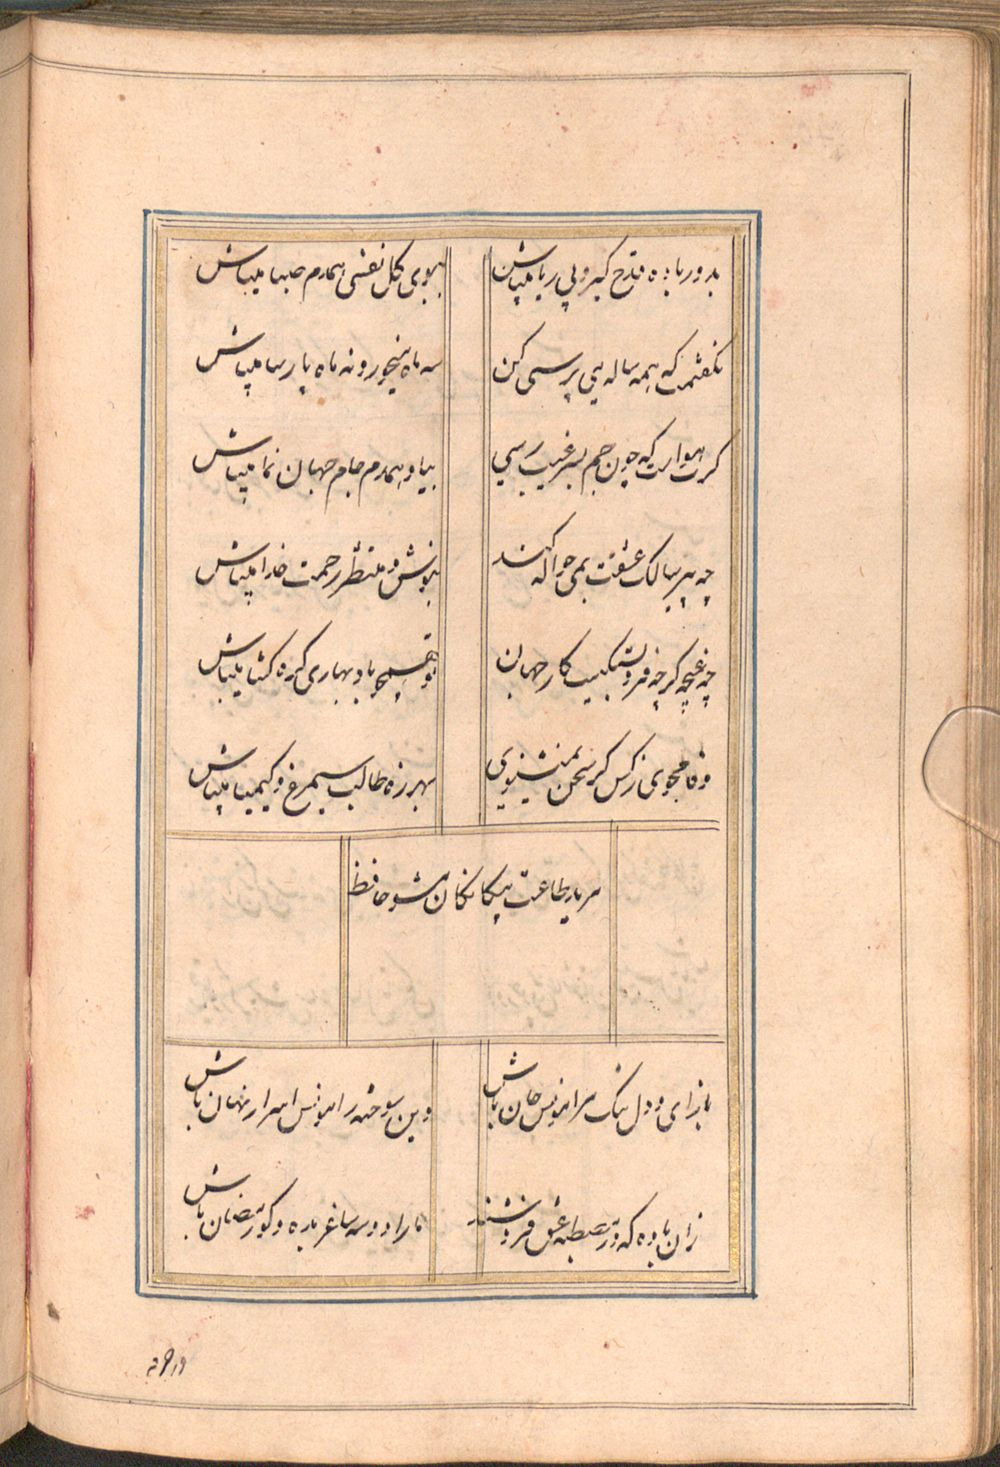 بدور باده قدح گیر و بی ریا میباش ببوی گل نفسی همدم صبا میباش
نگفتمت که همه ساله می پرستی کن سه ماه میخور و نه ماه پارسا میباش
گرت هواست که چون جم بسر غیب رسی بیا و همدم جام جهان نما میباش
چه پیر سالک عشقت بمی حواله کند بنوش و منتظر رحمت خدا میباش
چه غنچه گرچه فروبستگیست کار جهان تو همچو باد بهاری گره گشا میباش
وفا مجوی ز کس گر سخن نمیشنوی بهرزه طالب سیمرغ و کیمیا میباش
مرید طاعت بیگانگان مشو حافظ
باز ای و دل تنگ مرا مونس جان باش وین سوخته را مونس اسرار نهان باش
زان باده که در مصطبه عشق فروشند ما را دو سه ساغر بده و گو رمضان باش